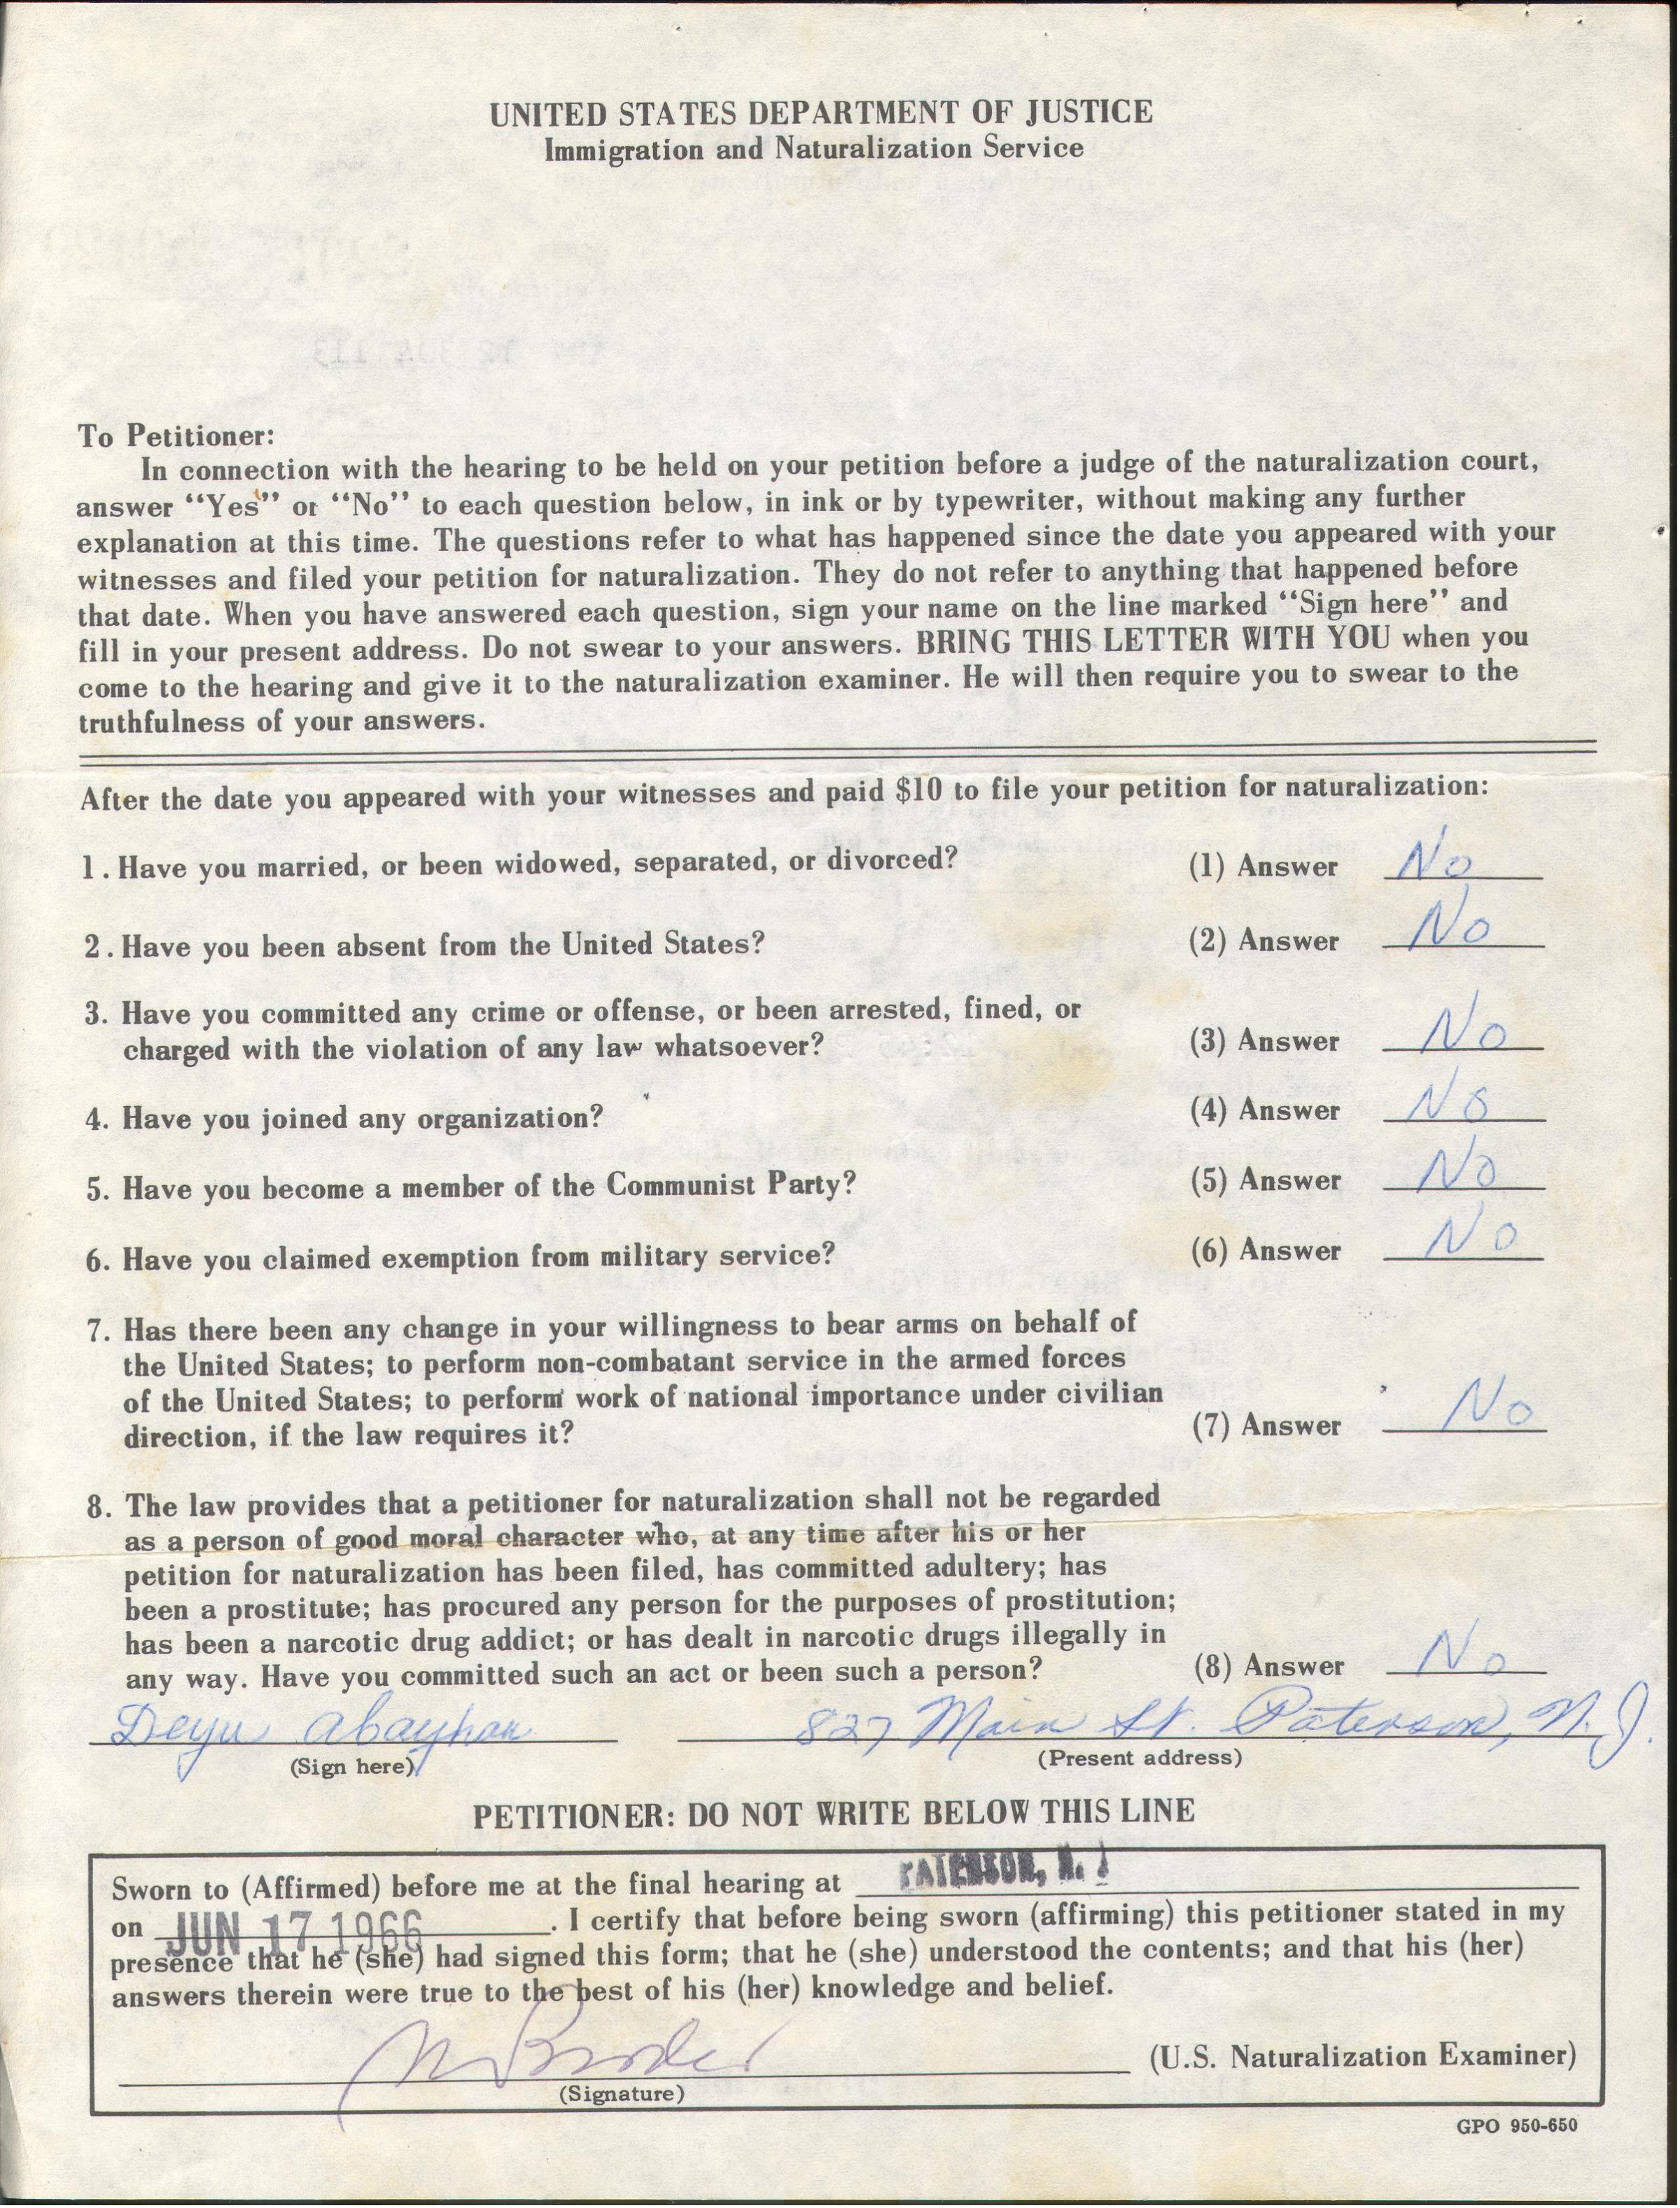 UNITED STATES DEPARTMENT OF JUSTICE
Immigration and Naturalization Service
To Petitioner:
In connection with the hearing to be held on your petition before a judge of the naturalization court,
answer “Yes” or “No” to each question below, in ink or by typewriter, without making any further
explanation at this time. The questions refer to what has happened since the date you appeared with your
witnesses and filed your petition for naturalization. They do not refer to anything that happened before
that date. When you have answered each question, sign your name on the line marked “Sign here” and
fill in your present address. Do not swear to your answers. BRING THIS LETTER WITH YOU when you
come to the hearing and give it to the naturalization examiner. He will then require you to swear to the
truthfulness of your answers.
After the date you appeared with your witnesses and paid $10 to file your petition for naturalization:
1. Have you married, or been widowed, separated, or divorced? (1) Answer No
2. Have you been absent from the United States? (2) Answer No
3. Have you committed any crime or offense, or been arrested, fined, or
charged with the violation of any law whatsoever? (3) Answer No
4. Have you joined any organization? (4) Answer No
5. Have you become a member of the Communist Party? (5) Answer No
6. Have you claimed exemption from military service? (6) Answer No
7. Has there been any change in your willingness to bear arms on behalf of
the United States; to perform non-combatant service in the armed forces
of the United States; to perform work of national importance under civilian
direction, if the law requires it? (7) Answer No
8. The law provides that a petitioner for naturalization shall not be regarded
as a person of good moral character who, at any time after his or her
petition for naturalization has been filed, has committed adultery; has
been a prostitute; has procured any person for the purposes of prostitution;
has been a narcotic drug addict; or has dealt in narcotic drugs illegally in
any way. Have you committed such an act or been such a person? (8) Answer No
827 Main St. Paterson, N.J.
(Sign here) (Present address)
PETITIONER: DO NOT WRITE BELOW THIS LINE
Sworn to (Affirmed) before me at the final hearing at PATERSON, N. J
on JUN 17 1966. I certify that before being sworn (affirming) this petitioner stated in my
presence that he (she) had signed this form; that he (she) understood the contents; and that his (her)
answers therein were true to the best of his (her) knowledge and belief.
(U.S. Naturalization Examiner)
(Signature)
GPO 950-650